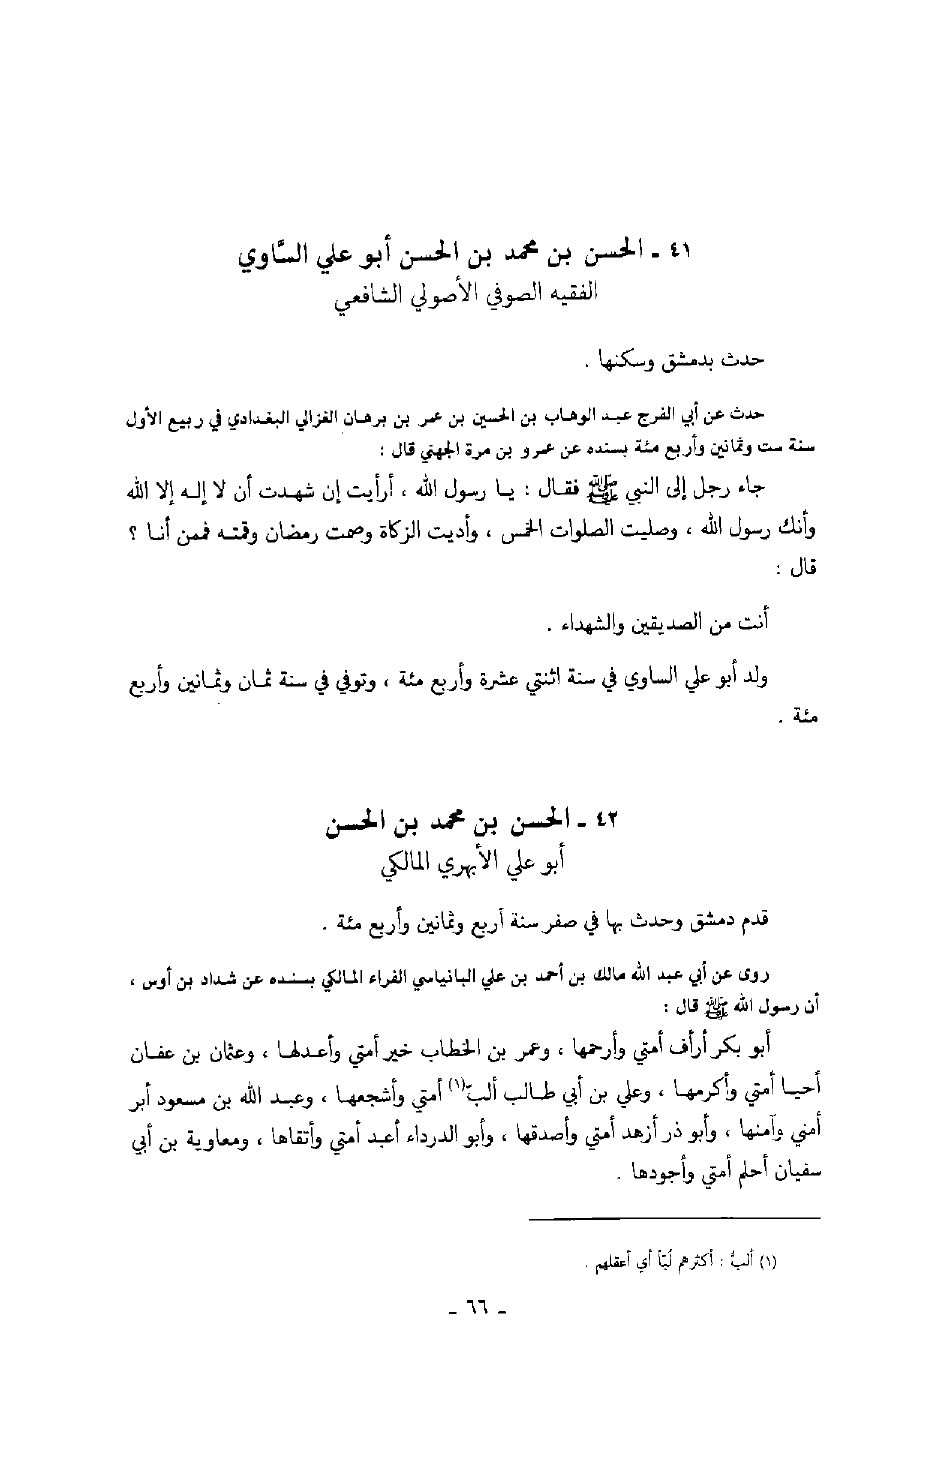 ٤١ ـ الحسن بن محمد بن الحسن أبو علي السَّاوي
الفقيه الصوفي الأصولي الشافعي
حدث بدمشق وسكنها .
حدث عن أبي الفرج عبد الوهاب بن الحسين بن عمر بن برهان الغزالي البغدادي في ربيع الأول
سنة ست وثمانين وأربع مئة بسنده عن عمرو بن مرة الجهني قال :
جاء رجل إلى النبي ﷺ فقال : يا رسول الله ، أرأيت إن شهدت أن لا إله إلا الله
وأنك رسول الله ، وصليت الصلوات الخمس ، وأديت الزكاة وصمت رمضان وقمته فمن أنا ؟
قال :
أنت من الصديقين والشهداء .
ولد أبو علي الساوي في سنة اثنتي عشرة وأربع مئة ، وتوفي في سنة ثمان وثمانين وأربع
مئة .
٤٢ ـ الحسن بن محمد بن الحسن
أبو علي الأبهري المالكي
قدم دمشق وحدث بها في صفر سنة أربع وثمانين وأربع مئة .
روى عن أبي عبد الله مالك بن أحمد بن علي البانياسي الفراء المالكي بسنده عن شداد بن أوس ،
أن رسول الله ﷺ قال :
أبو بكر أرأف أمتي وأرحمها ، وعمر بن الخطاب خير أمتي وأعدلها ، وعثمان بن عفان
أحيا أمتي وأكرمها ، وعلي بن أبي طالب ألبّ(١) أمتي وأشجعها ، وعبد الله بن مسعود أبر
أمتي وآمنها ، وأبو ذر أزهد أمتي وأصدقها ، وأبو الدرداء أعبد أمتي وأتقاها ، ومعاوية بن أبي
سفيان أحلم أمتي وأجودها .
(١) ألبُّ : أكثرهم لُبّاً أي أعقلهم .
ـ ٦٦ ـ